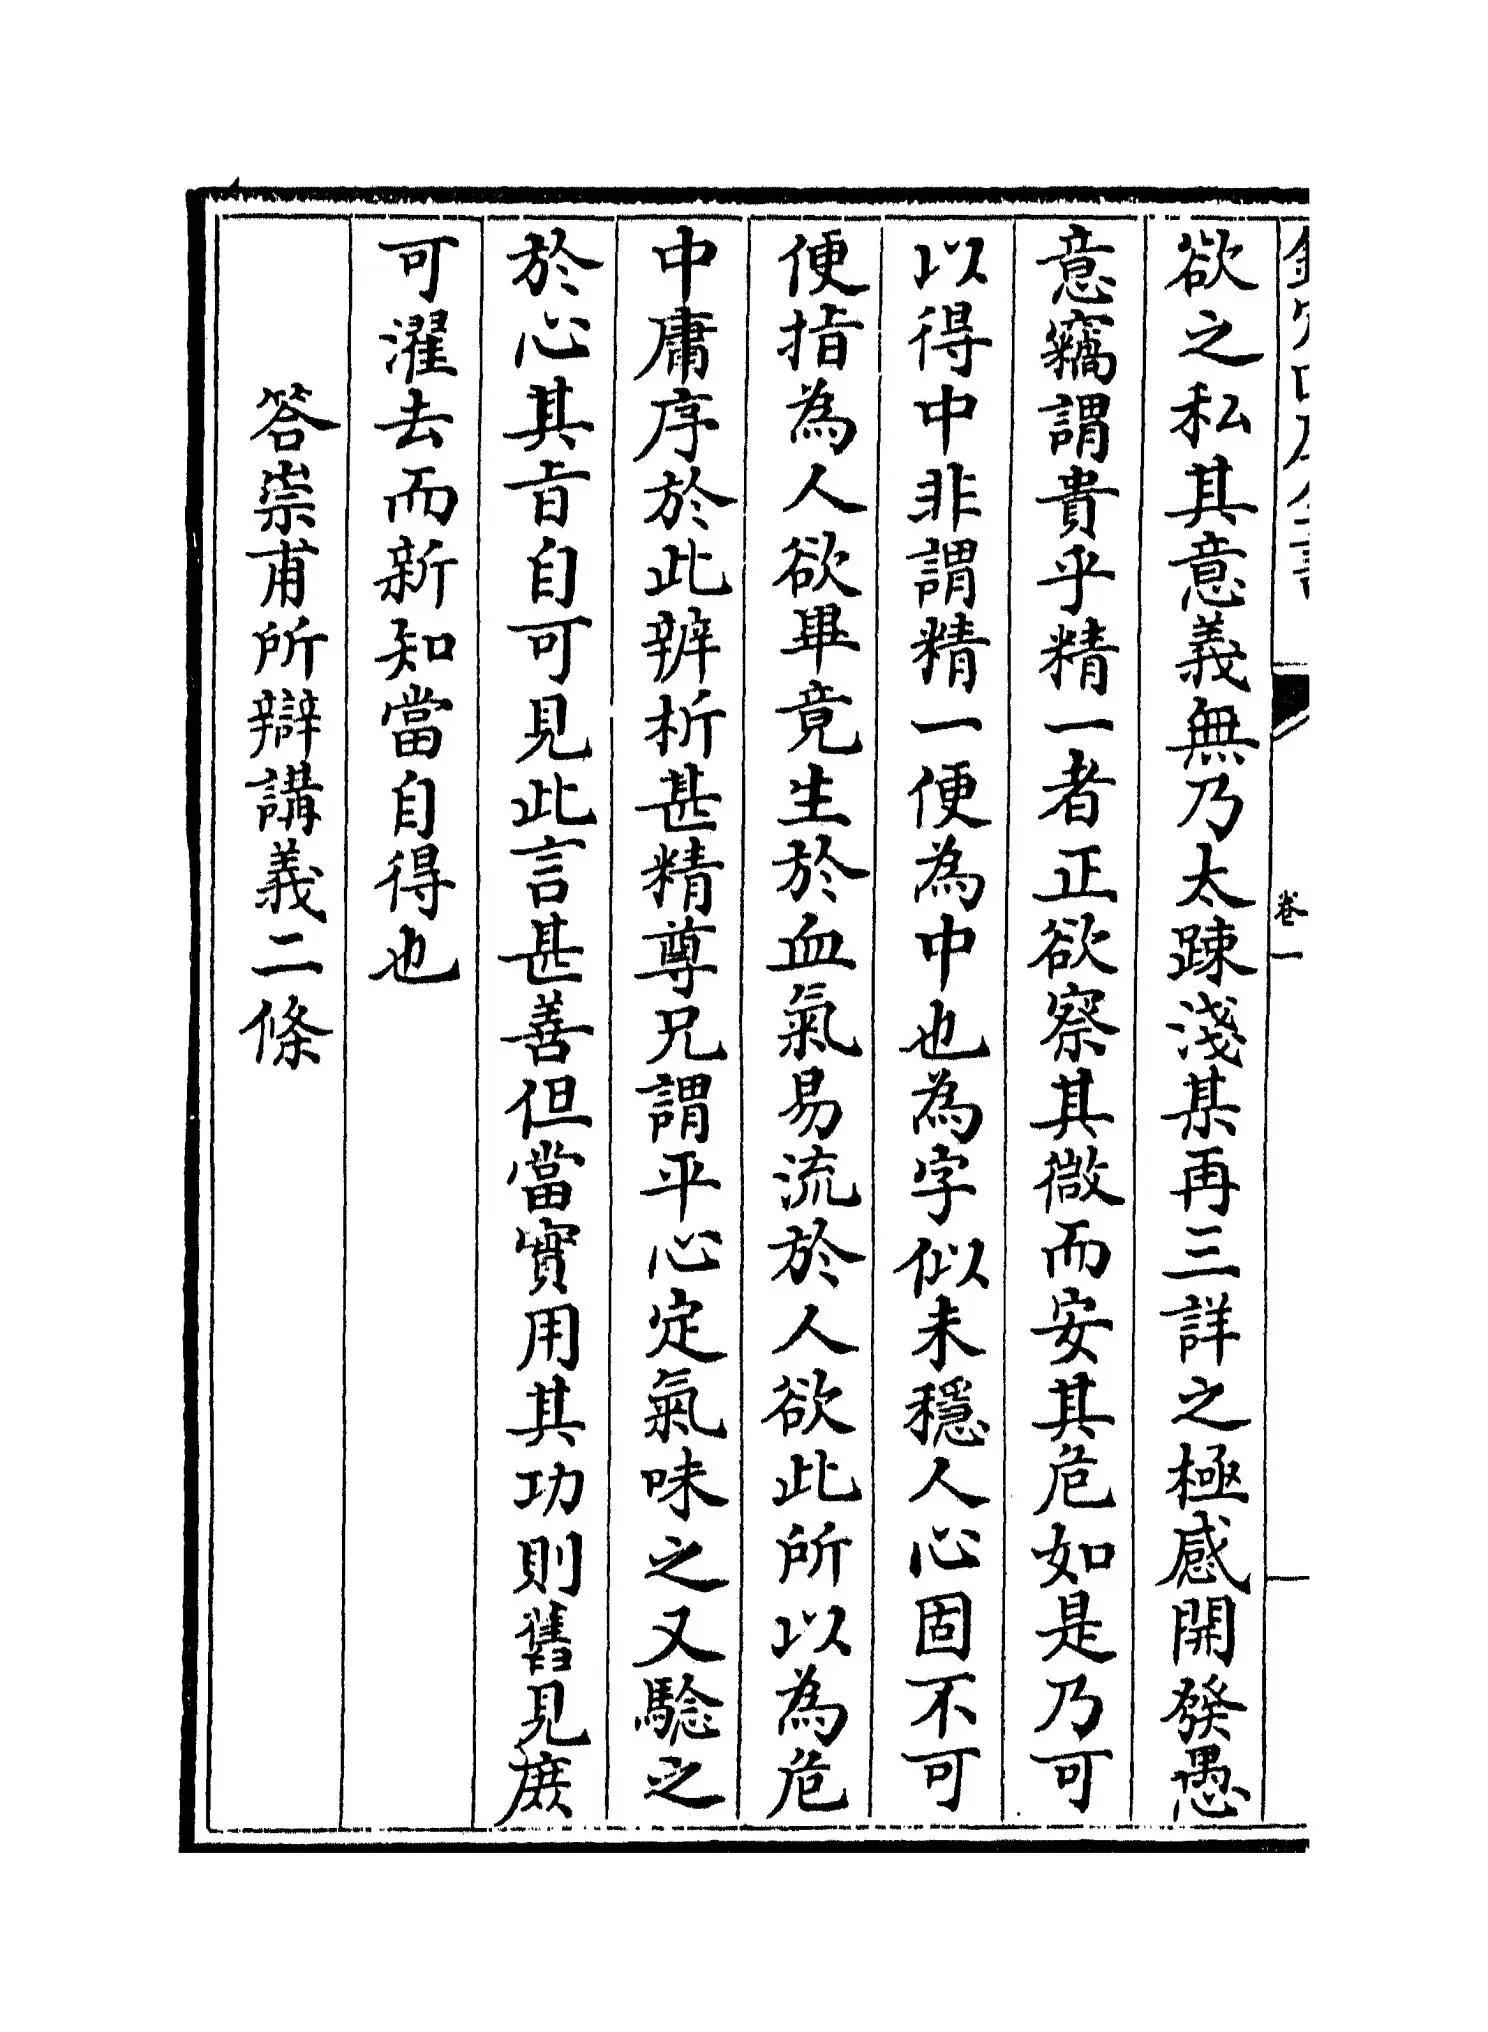 欲之私其意義無乃太踈淺某再三詳之極感開發愚
意竊謂貴乎精一者正欲察其微而安其危如是乃可
以得中非謂精一便為中也為字似未穩人心固不可
便指為人欲畢竟生於血氣易流於人欲此所以為危
中庸序於此辨析甚精尊兄謂平心定氣味之又驗之
於心其旨自可見此言甚善但當實用其功則舊見庶
可濯去而新知當自得也
答崇甫所辯講義二條
卷一